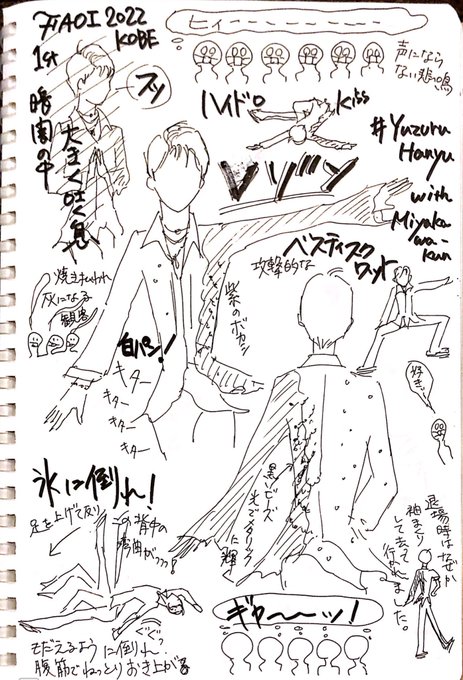 FAOI 2022
KOBE
1st
暗闇の中
大きく吐く息
スッ
ヒィーーーーーーーーー
声になら
ない悲鳴
ハイドロ
Kiss
#Yuzuru
Hanyu
with
Miyakawa-
kun
レゾン
攻撃的な
ベスティスクワット
焼き払われ
灰になる
観客
紫のボカシ
白パン!
キター
キター
キター
キター
好き…
氷に倒れ!
足を上げて反り
この背中の
弯曲がっっっ!
黒いビーズ
光でメタリック
に輝く
退場時はなぜか
袖まくり
して去って
行かれました。
ギャ〜〜ッ!
ぐぐっ
もだえるように倒れ
腹筋でねっとりおき上がる